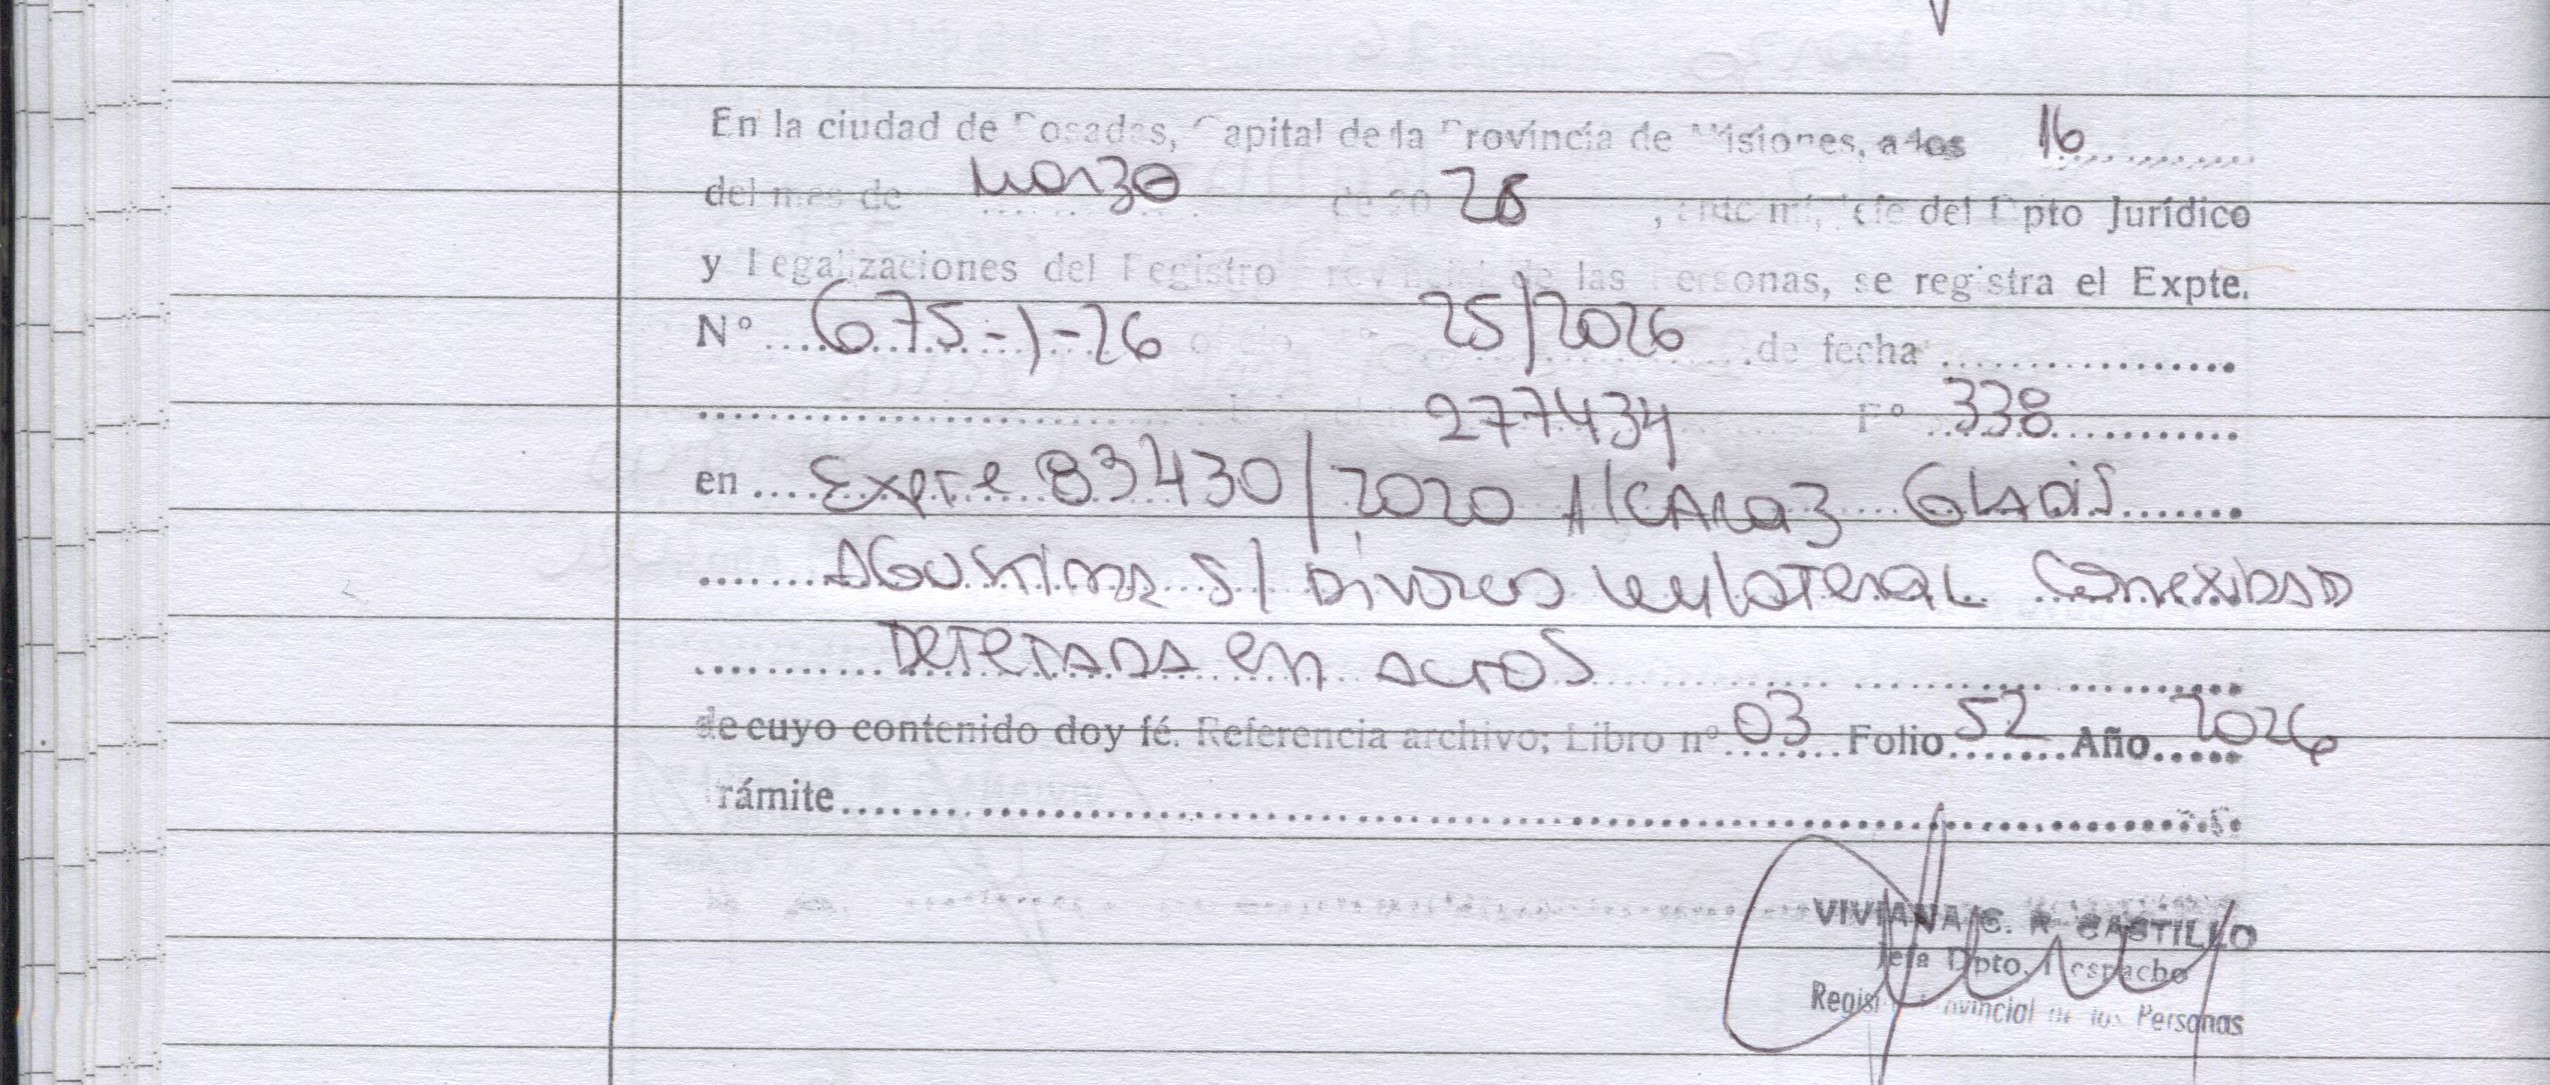 En la ciudad de Posadas, Capital de la Provincia de Misiones, a los 16
del mes de Marzo de 20 26, ante mi, Jefe del Dpto Jurídico
y Legalizaciones del Registro Provincial de las Personas, se registra el Expte.
Nº 675-J-26 25/2026 de fecha
277434 Fº 338
en Expte 83430/2020 Alcaraz Gladis
Agustina S/ Divorcio Unilateral Conexidad
Detetada en autos
de cuyo contenido doy fé. Referencia archivo: Libro nº 03 Folio 52 Año 2026
rámite
VIVIANA C. R. CASTILLO
Jefa Dpto. Despacho
Registro Provincial de las Personas